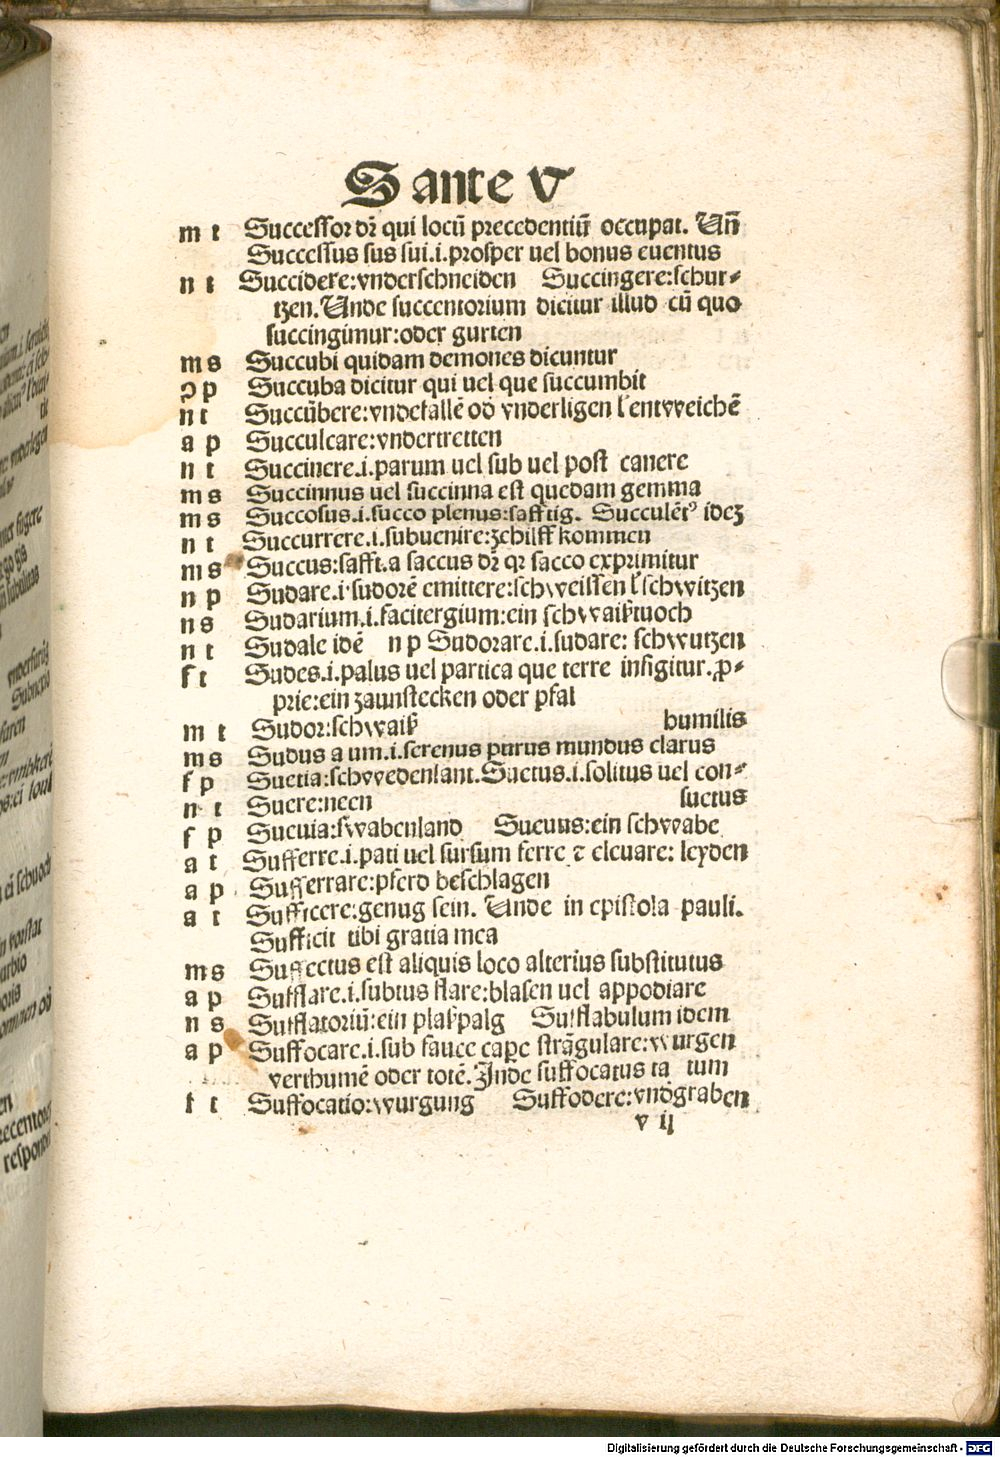 S ante v
m t Successor dr̄ qui locū precedentiū occupat. Un̄
Successus sus sui.i.prosper uel bonus euentus
n t Succidere:vnderschneiden Succingere:schur⸗
tzen.Unde succentorium dicitur illud cū quo
succingimur:oder gurten
m s Succubi quidam demones dicuntur
ɔ p Succuba dicitur qui uel que succumbit
n t Succūbere:vndefallē od vnderligen l entvveichē
a p Succulcare:vndertretten
n t Succinere.i.parum uel sub uel post canere
m s Succinnus uel succinna est quedam gemma
m s Succosus.i.succo plenus:safftig. Succulēt⁹ ideʒ
n t Succurrere.i.subuenire:ʒehilff kommen
m s Succus:safft.a saccus dr̄ qr sacco exprimitur
n p Sudare.i.sudorē emittere:schweissen l schwitzen
n s Sudarium.i.facitergium:ein schwaißtuoch
n t Sudale idē n p Sudorare.i.sudare: schwutzen
f t Sudes.i.palus uel partica que terre insigitur.ꝓ⸗
prie:ein zaunstecken oder pfal
m t Sudor:schwaiß humilis
m s Sudus a um.i.serenus purus mundus clarus
f p Suetia:schvvedenlant.Suetus.i.solitus uel con⸗
n t Suere:neen suetus
f p Sueuia:swabenland Sueuus:ein schwabe
a t Sufferre.i.pati uel sursum ferre ⁊ eleuare: leyden
a p Sufferrare:pferd beschlagen
a t Sufficere:genug sein. Unde in epistola pauli.
Sufficit tibi gratia mea
m s Suffectus est aliquis loco alterius substitutus
a p Sufflare.i.subtus flare:blasen uel appodiare
n s Sufflatoriū:ein plaßpalg Sufflabulum idem
a p Suffocare.i.sub fauce caꝑe strāgulare:wurgen
verthumē oder totē.Inde suffocatus ta tum
f t Suffocatio:wurgung Suffodere:vndgraben
v ij
Digitalisierung gefördert durch die Deutsche Forschungsgemeinschaft - DFG